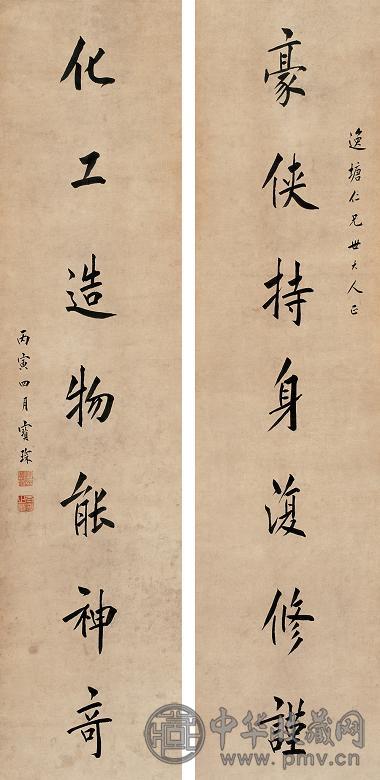 逸塘仁兄世大人正
豪俠持身復修謹
化工造物能神奇
丙寅四月寶琛
中华珍藏网
www.pmv.cn